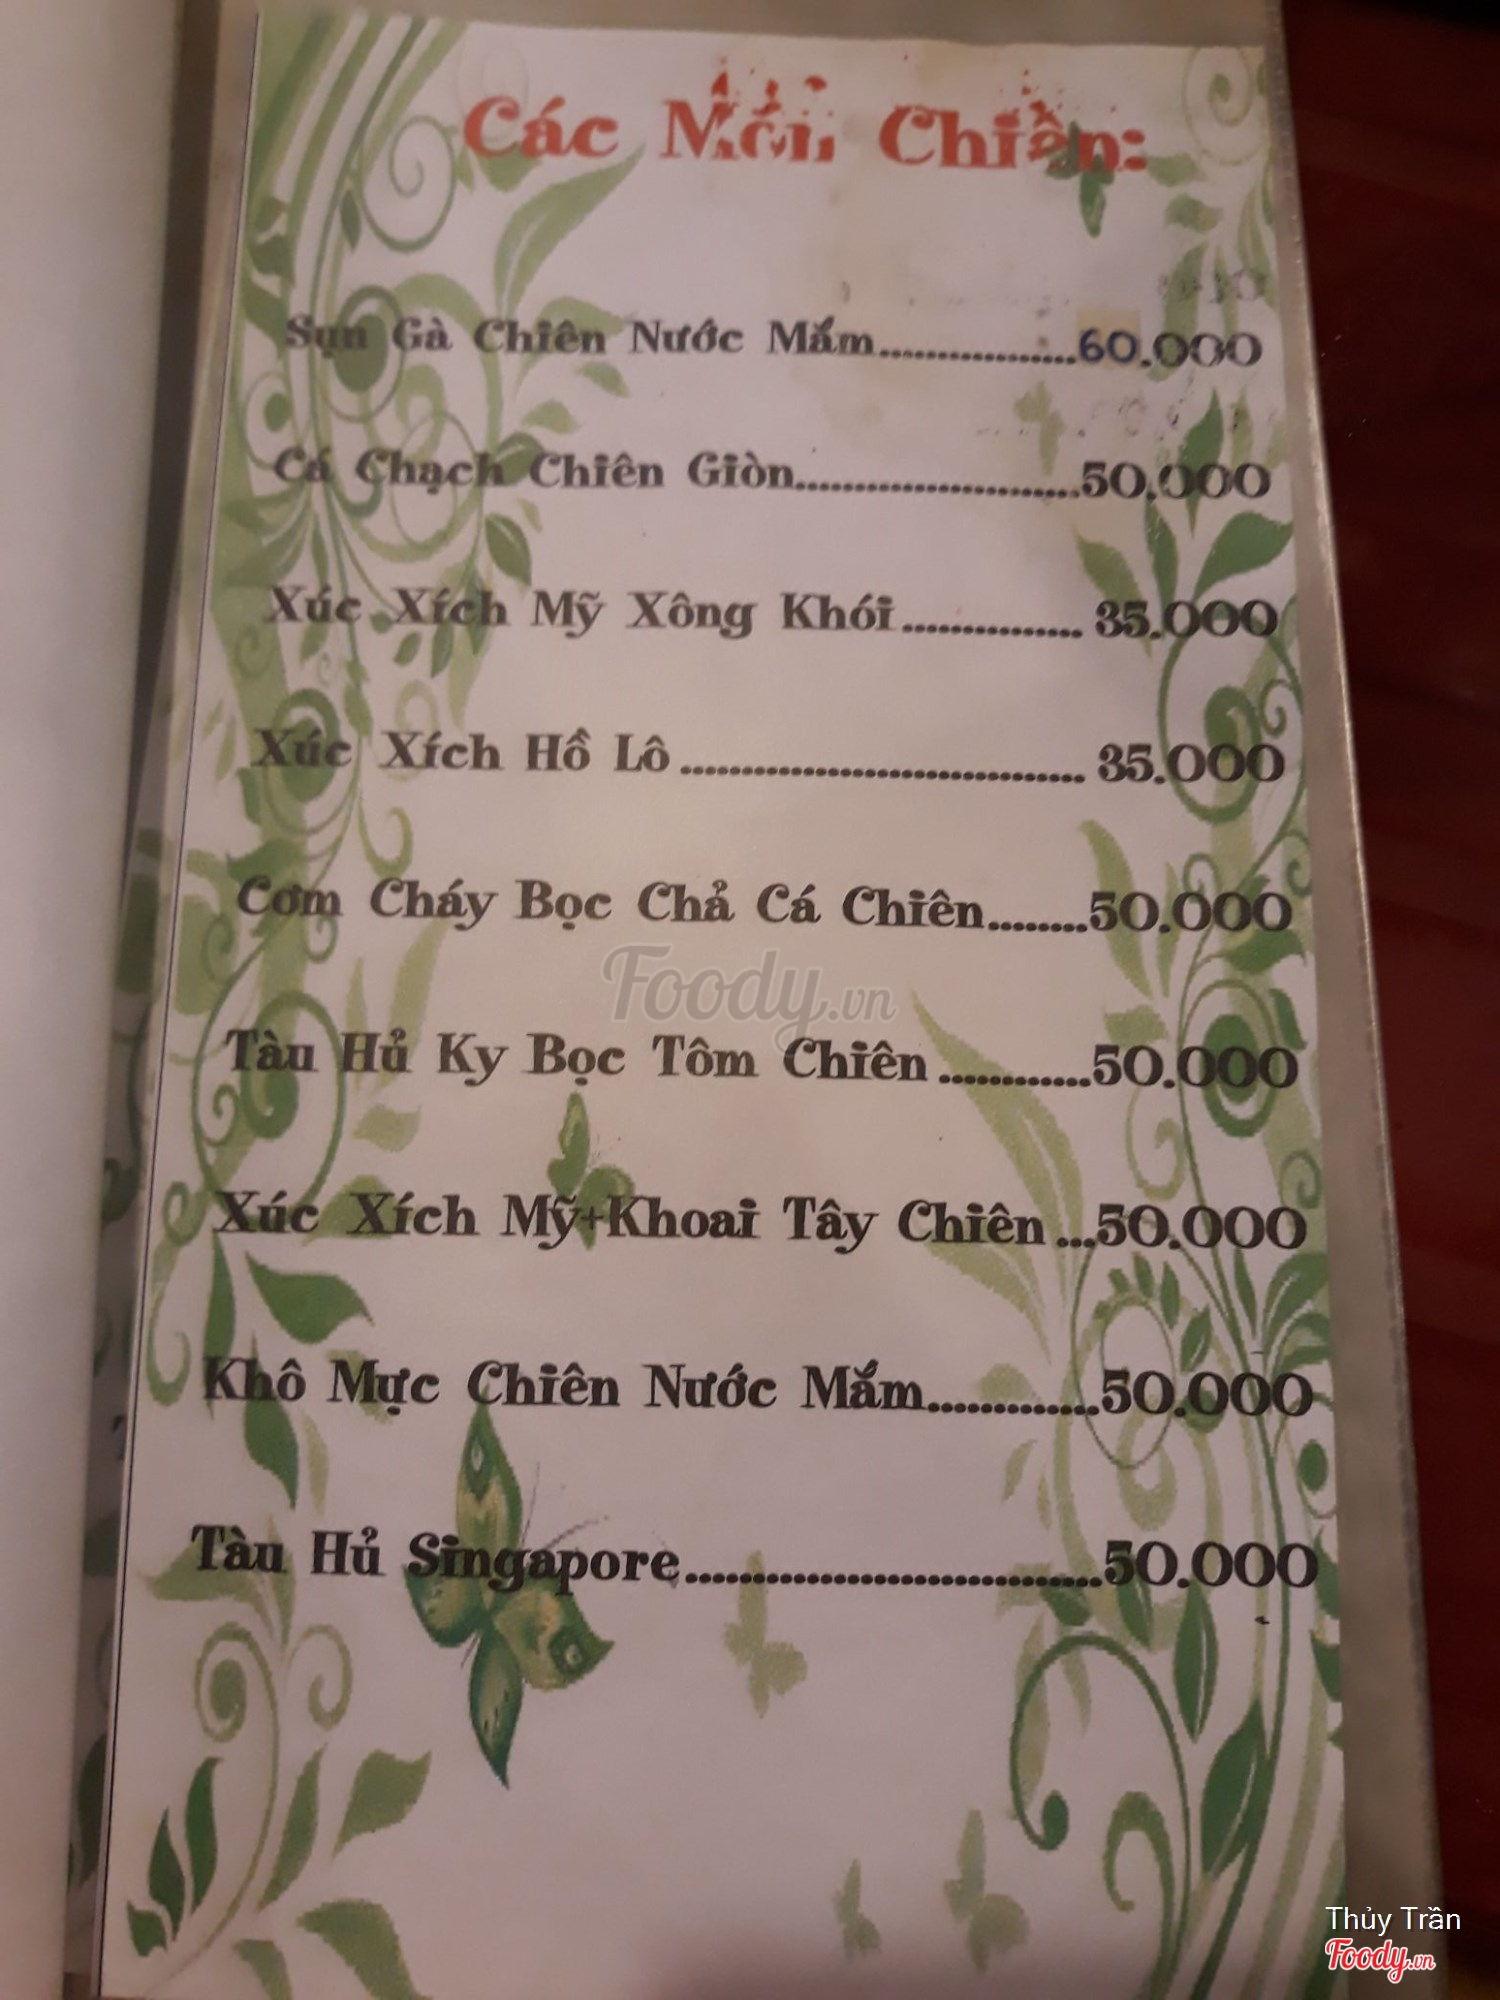 Các Món Chiên:
Sụn Gà Chiên Nước Mắm.................60.000
Cá Chạch Chiên Giòn........................50.000
Xúc Xích Mỹ Xông Khói............... 35.000
Xúc Xích Hồ Lô................................. 35.000
Cơm Cháy Bọc Chả Cá Chiên........50.000
Foody.vn
Tàu Hủ Ky Bọc Tôm Chiên............50.000
Xúc Xích Mỹ+Khoai Tây Chiên...50.000
Khô Mực Chiên Nước Mắm.............50.000
Tàu Hủ Singapore................................50.000
Thủy Trần
Foody.vn